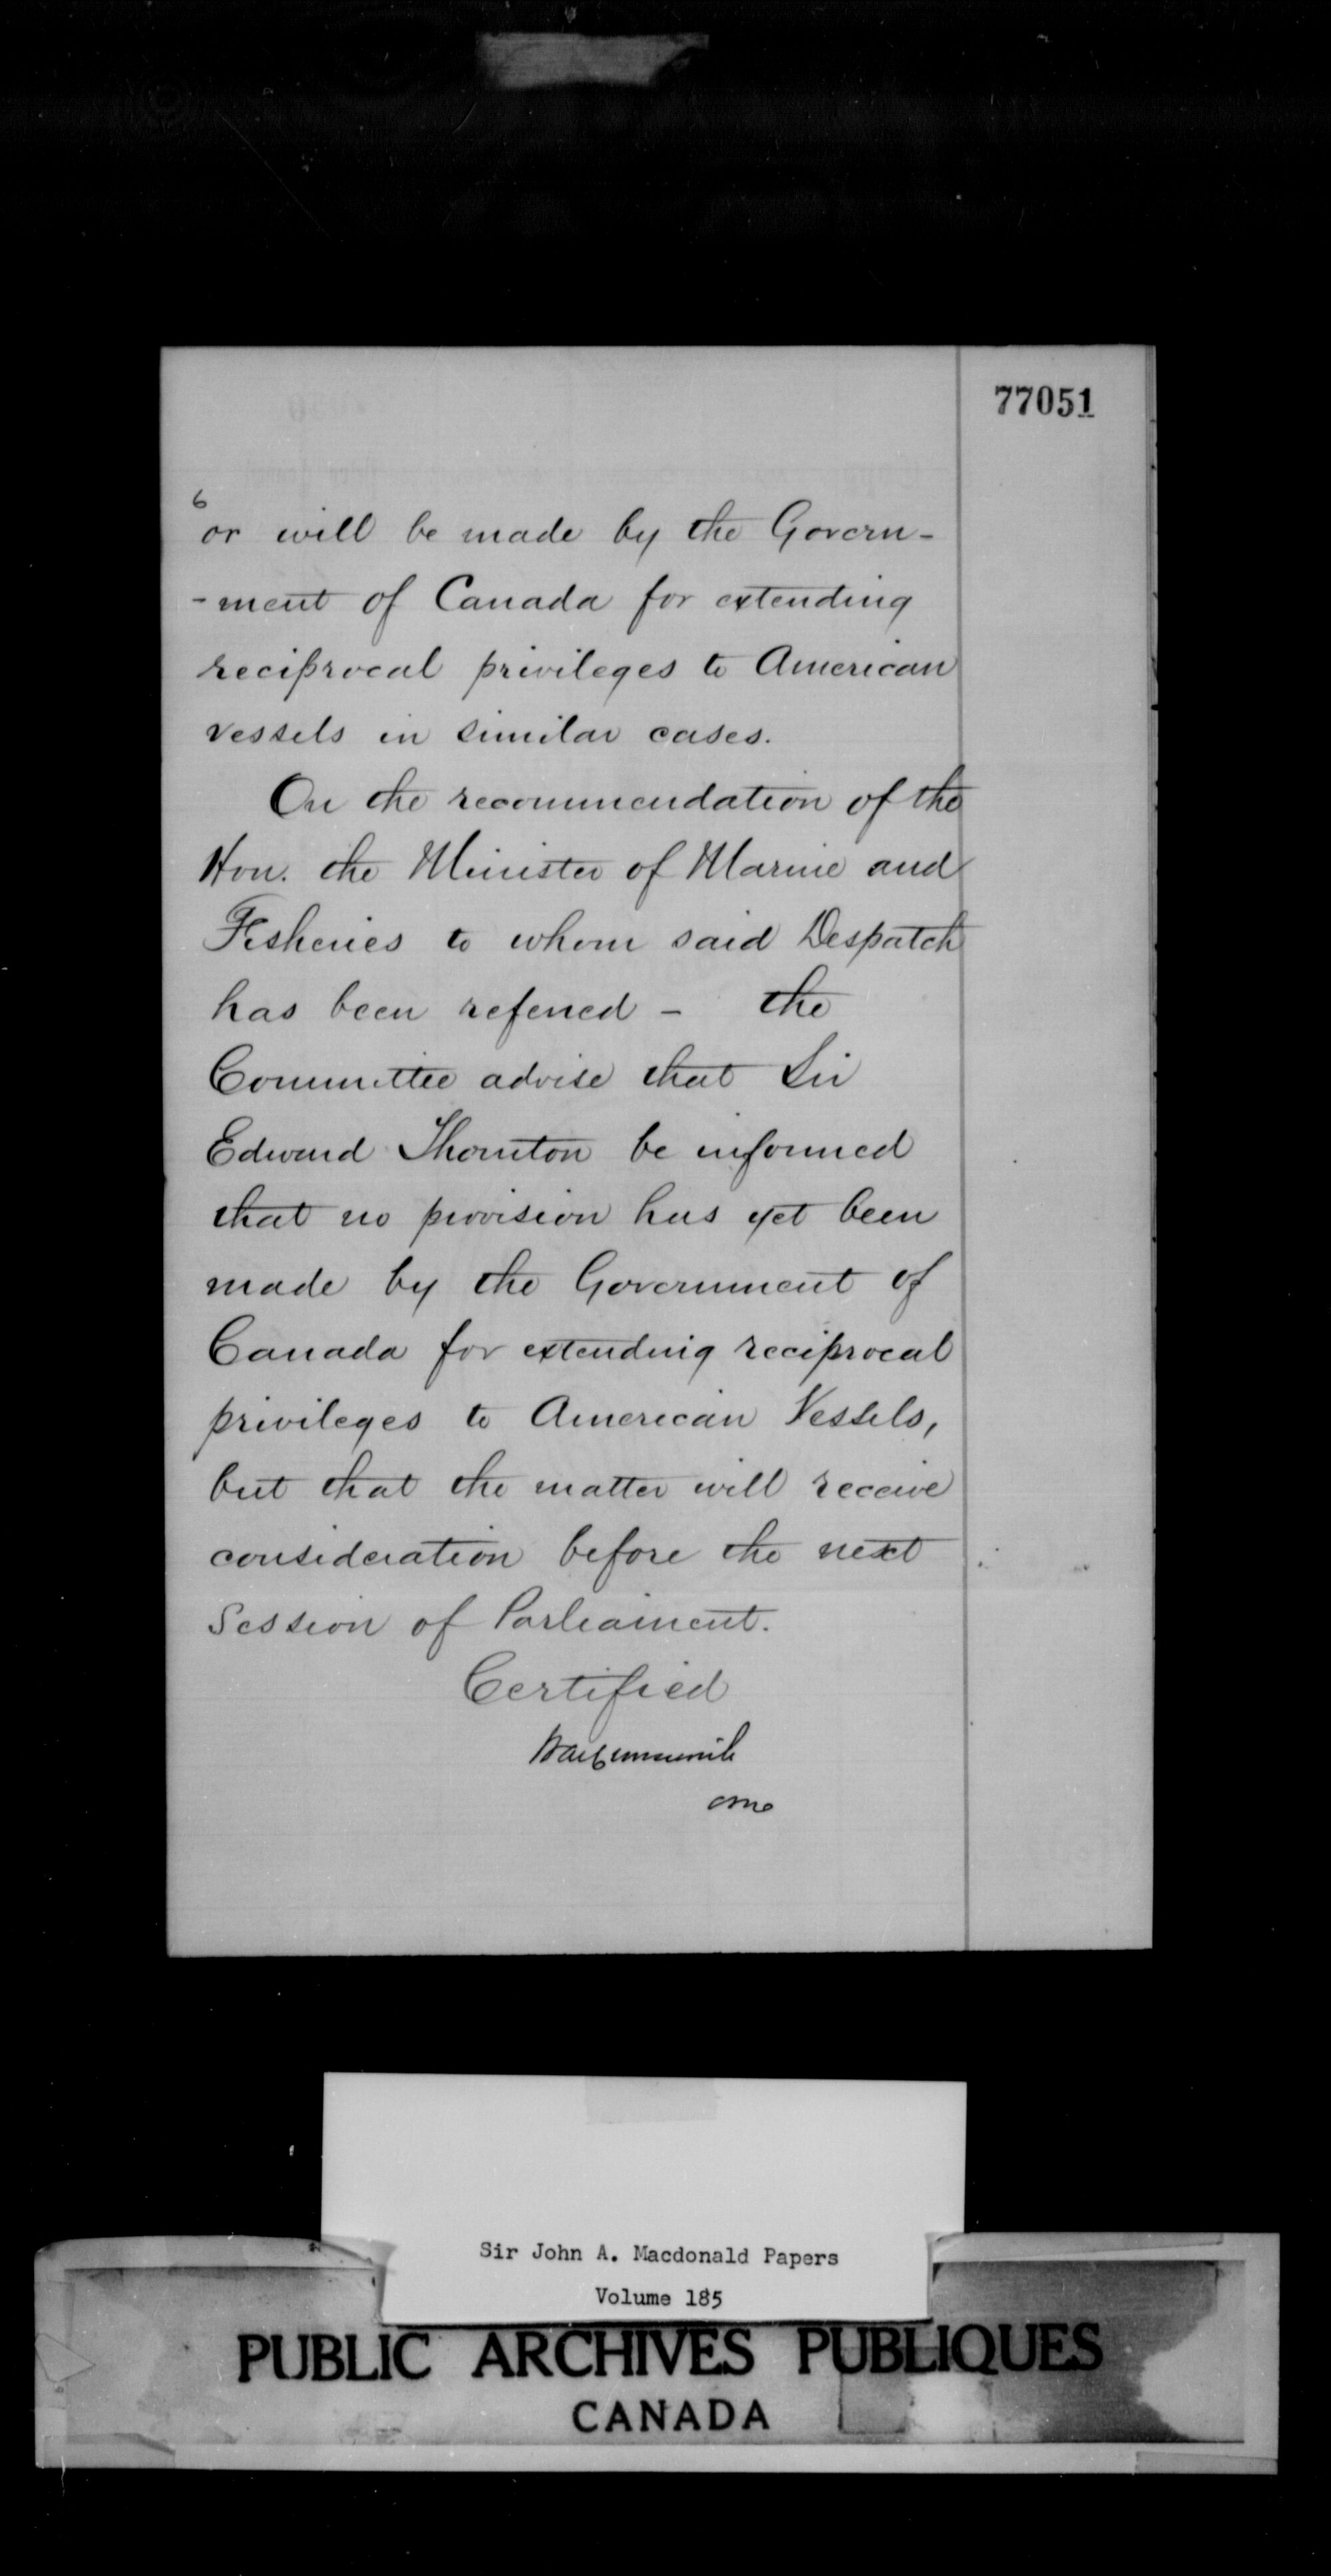 77051
6
or will be made by the Govern-
-ment of Canada for extending
reciprocal privileges to American
vessels in similar cases.
On the recommendation of the
Hon. the Minister of Marine and
Fisheries to whom said Despatch
has been referred - the
Committee advise that Sir
Edward Thornton be informed
that no provision has yet been
made by the Government of
Canada for extending reciprocal
privileges to American Vessels,
but that the matter will receive
consideration before the next
Session of Parliament.
Certified
Sir John A. Macdonald Papers
Volume 185
PUBLIC ARCHIVES PUBLIQUES
CANADA